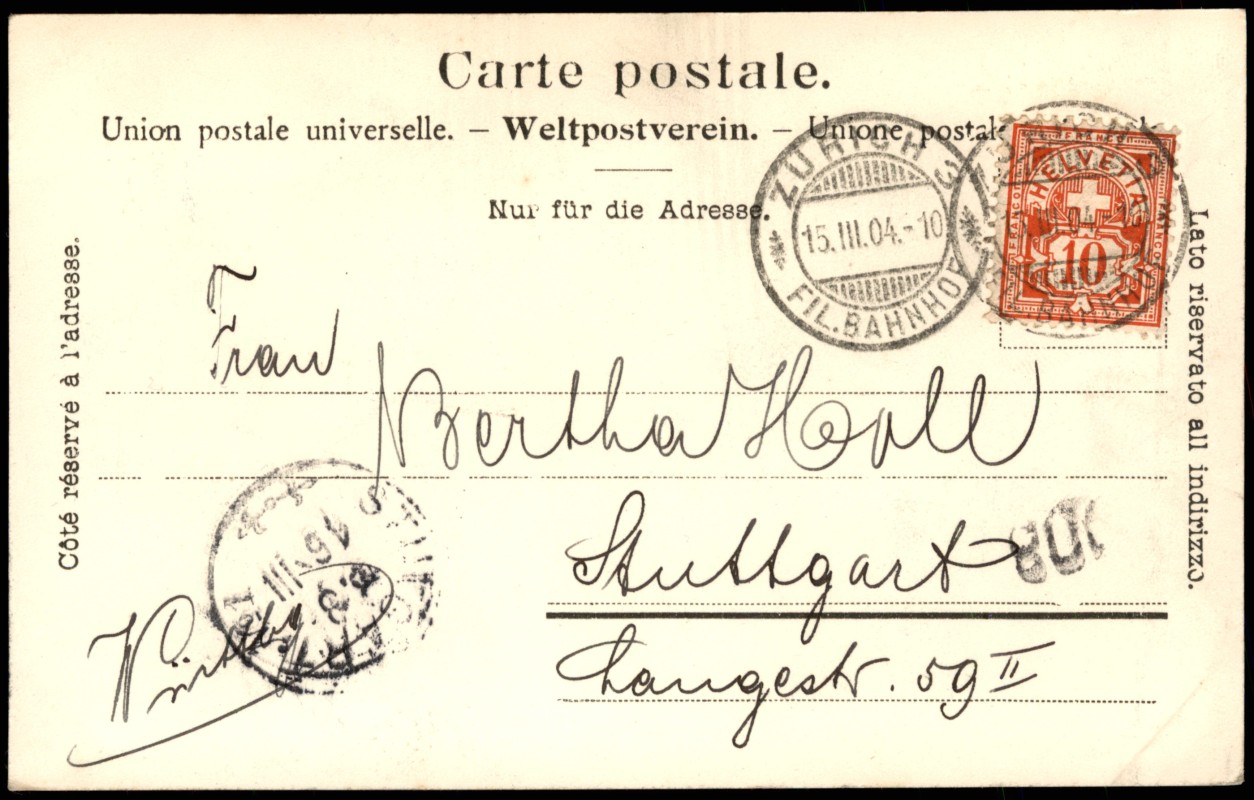 Carte postale.
Union postale universelle. – Weltpostverein. – Unione postale
Nur für die Adresse.
ZÜRICH 3
15.III.04.-10
FIL. BAHNHOF
FRANCO
HELVETIA
10
Côté réservé à l'adresse.
Lato riservato all indirizzo.
Frau
Bertha Holl
Stuttgart
Langestr. 59 II
Württbg
STUTTGART
16 III
108